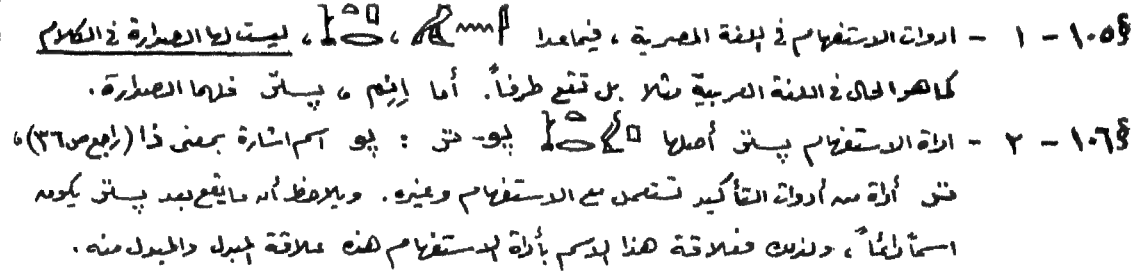 §١٠٥ - ١ - ادوات الاستفهام في اللغة المصرية ، فيماعدا ، ، ليست لها الصدارة في الكلام
كما هو الحال في اللغة العربية مثلا بل تقع طرفاً. أما إنِم ، پستن فلهما الصدارة.
§١٠٦ - ٢ - اداة الاستفهام پستن أصلها پو- تن : پو اسم اشارة بمعنى ذا (راجع ص ٣٦)،
أداة من أدوات التأكيد تستعمل مع الاستفهام وغيره. ويلاحظ أن ما يقع بعد پستن يكون
اسماً دائماً ، ولذلك فعلاقة هذا الاسم بأداة الاستفهام هذه علاقة المبدل والمبدل منه.